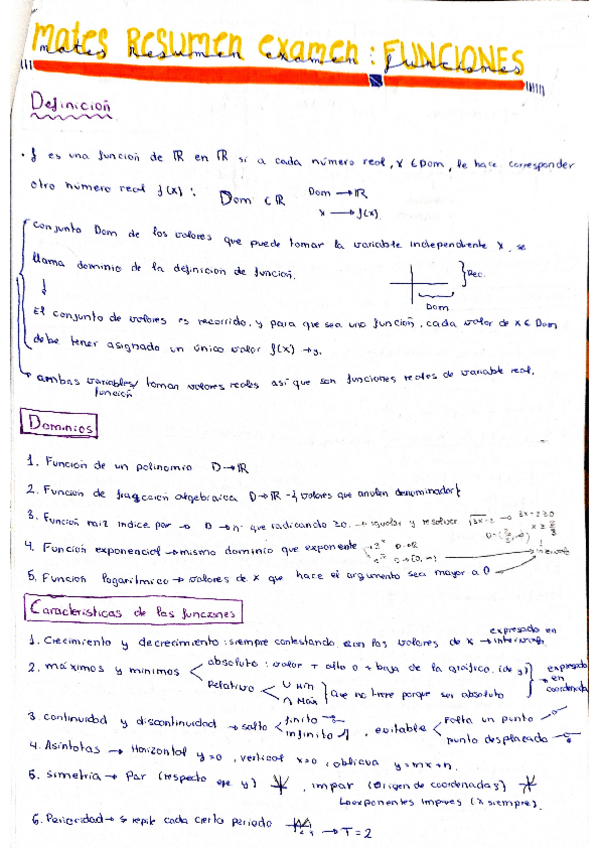 Mates Resumen examen : FUNCIONES
mates resumen examen funciones
Definición
· f es una función de ℝ en ℝ si a cada número real, x ∈ Dom, le hace corresponder
otro número real f(x) : Dom ⊂ ℝ Dom → ℝ
x → f(x)
conjunto Dom de los valores que puede tomar la variable independiente x, se
llama dominio de la definición de función.
Rec.
Dom
El conjunto de valores es recorrido, y para que sea una función, cada valor de x ∈ Dom
debe tener asignado un único valor f(x) → y.
ambas variables/ toman valores reales así que son funciones reales de variable real.
función
Dominios
1. Función de un polinomio D → ℝ
2. Función de fracción algebraica D → ℝ - { valores que anulen denominador }
3. Función raíz índice par → D → que radicando ≥0. → igualar y resolver √3x-2 → 3x-2≥0
x ≥ 2/3
4. Función exponencial → mismo dominio que exponente
5. Función logarítmico → valores de x que hace el argumento sea mayor a 0
Características de las funciones
1. Crecimiento y decrecimiento : siempre contestando con los valores de x → expresado en
intervalos
2. máximos y mínimos absoluto : valor + alto o + bajo de la gráfica. (de y) expresado
en
coordenada
Relativo U Min
∩ Máx Que no tiene porque ser absoluto
3. continuidad y discontinuidad → salto finito
infinito , evitable Falta un punto
punto desplazado
4. Asíntotas → Horizontal y=0 , vertical x=0 , oblicua y=mx+n.
5. Simetría → Par (respecto eje y) , impar (Origen de coordenadas)
exponentes impares (x siempre).
6. Periocidad → s repite cada cierto periodo → T = 2